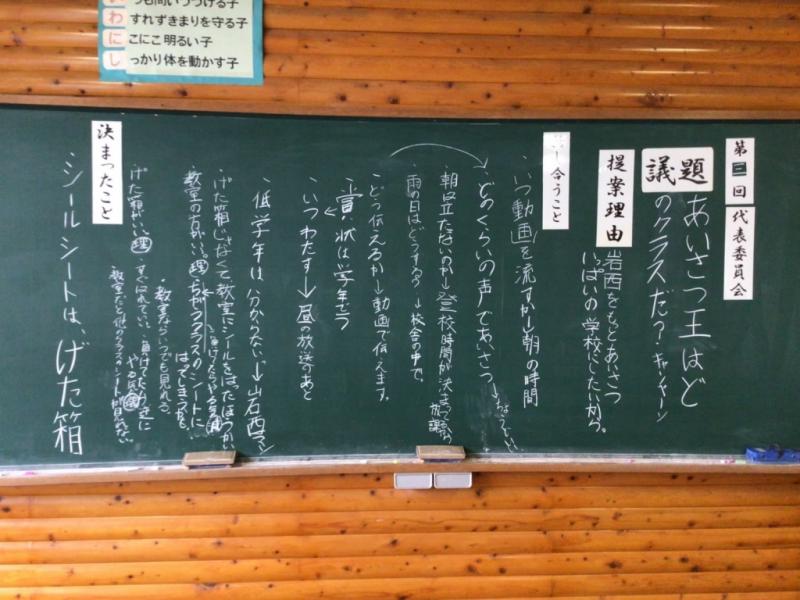 つも問いつづける子
わ すれずきまりを守る子
に こにこ明るい子
し っかり体を動かす子
第三回 代表委員会
議題
あいさつ王はど
のクラスだ？・キャンペーン
提案理由
岩西をもっとあいさつ
いっぱいの学校にしたいから。
し合うこと
・いつ動画を流すか→朝の時間
・どのくらいの声であいさつ→
・朝は立たないのか→登校時間が決まっ
・雨の日はどうする？→校舎の中で。
・どう伝えるか→動画で伝えます。
・賞状は学年そう
・いつわたす→昼の放送のあと
・低学年は分からない。→岩西マン
・げた箱じゃなくて教室にシールをはったほうがいい
教室の方がいい。理 ちがうクラスのシートに
はってしまうかも。
・教室ならいつでも見れる。
げた箱がいい。理
教室だと他のクラスのシートが見れない。
決まったこと
・シールシートは、げた箱